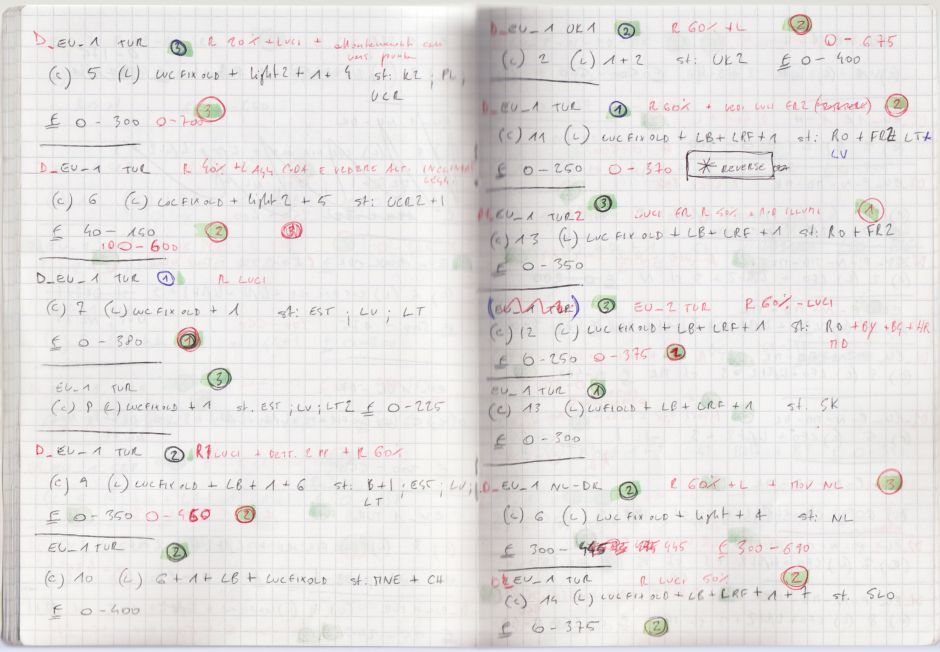 D_EU_1 TUR 3 R 20% + LUCI +
(C) 5 (L) LUCFIXOLD + light2 + 1 + 4 st: K2 ; PL ;
UCR
£ 0-300 0-700 3
D_EU_1 TUR R 40% + L AGG CODA E VEDERE ALT.
(C) 6 (L) LUCFIXOLD + light2 + 5 st: UCR2 + 1
£ 40-150 2 3
100-600
D_EU_1 TUR 1 R LUCI
(C) 7 (L) LUCFIXOLD + 1 st: EST ; LV ; LT
£ 0-380 1
EU_1 TUR 3
(C) 8 (L) LUCFIXOLD + 1 st. EST ; LV ; LT2 £ 0-225
D_EU_1 TUR 2 LUCI + DETT. 2 PP + R 60%
(C) 9 (L) LUCFIXOLD + LB + 1 + 6 st: B+1 ; EST ; LV ;
LT
£ 0-350 0-460 2
EU_1 TUR 2
(C) 10 (L) 6 + 1 + LB + LUCFIXOLD st: MNE + CH
£ 0-400
D_EU_1 UK1 2 R 60% + L 2
0-675
(C) 2 (L) 1+2 st: UK2 £ 0-400
D_EU_1 TUR 1 R 60% + LUCI FR2 2
(C) 11 (L) LUCFIXOLD + LB + LRF + 1 st: RO + FR2 LT +
LV
£ 0-250 0-370 * REVERSE
EU_1 TUR2 3 LUCI FR R 50% + RIP ILLUMI 1
(C) 13 (L) LUCFIXOLD + LB + LRF + 1 st: RO + FR2
£ 0-350
(EU_1 TUR) 3 EU_2 TUR R 60% - LUCI
(C) 12 (L) LUCFIXOLD + LB + LRF + 1 st: RO + BY + BG + HR
MD
£ 0-250 0-375 2
EU_1 TUR 1
(C) 13 (L) LUFIOLD + LB + LRF + 1 st. SK
£ 0-300
D_EU_1 NL-DK 2 R 60% + L + MOV NL 3
(C) 6 (L) LUCFIXOLD + light + 4 st: NL
£ 300-445 445 £ 300-690
EU_1 TUR R LUCI 50% 2
(C) 14 (L) LUCFIXOLD + LB + LRF + 1 + 7 st. SLO
£ 0-375 2